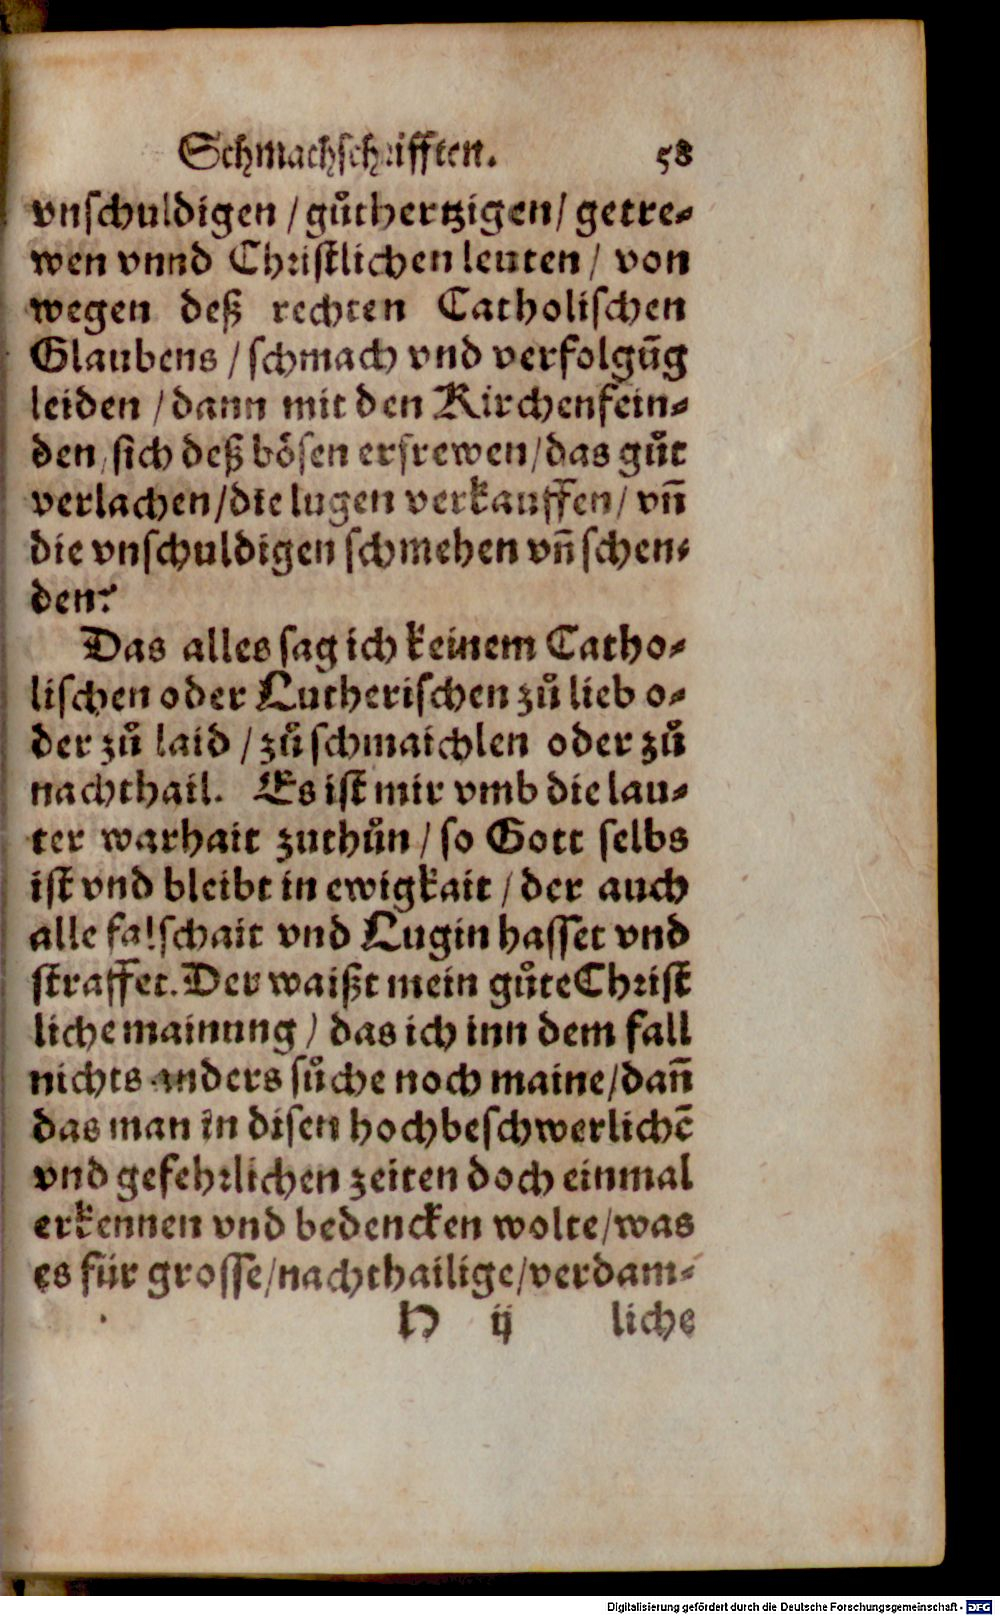 Schmachschrifften. 58
vnschuldigen / gůthertzigen / getre⸗
wen vnnd Christlichen leuten / von
wegen deß rechten Catholischen
Glaubens / schmach vnd verfolgūg
leiden / dann mit den Kirchenfein⸗
den / sich deß bösen erfrewen / das gůt
verlachen / die lugen verkauffen / vñ
die vnschuldigen schmehen vñ schen⸗
den?
Das alles sag ich keinem Catho⸗
lischen oder Lutherischen zů lieb o⸗
der zů laid / zů schmaichlen oder zů
nachthail. Es ist mir vmb die lau⸗
ter warhait zuthůn / so Gott selbs
ist vnd bleibt in ewigkait / der auch
alle falschait vnd Lugin hasset vnd
straffet. Der waißt mein gůte Christ
liche mainung / das ich inn dem fall
nichts anders sůche noch maine / dañ
das man in disen hochbeschwerlichē
vnd gefehrlichen zeiten doch einmal
erkennen vnd bedencken wolte / was
es für grosse / nachthailige / verdam⸗
H ij liche
Digitalisierung gefördert durch die Deutsche Forschungsgemeinschaft - DFG